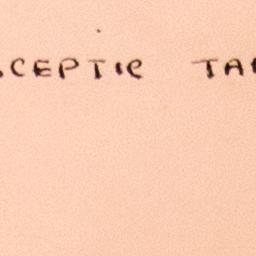 CEPTIC TA